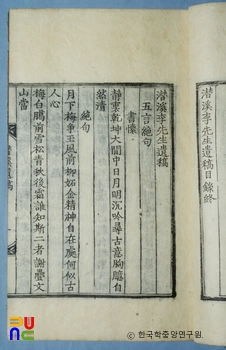 潜溪李先生遺稿目錄終
潜溪李先生遺稿
五言絶句
書懷
靜裏乾坤大閒中日月明沉吟尋古意胸膓自
然淸
絶句
月下梅重玉風前柳妬金精神自在處何似古
人心
梅白鵬前雪松青秋後霜誰知斯二者謝疊文
山當
潛溪遺稿
FUNC
© 한국학중앙연구원.